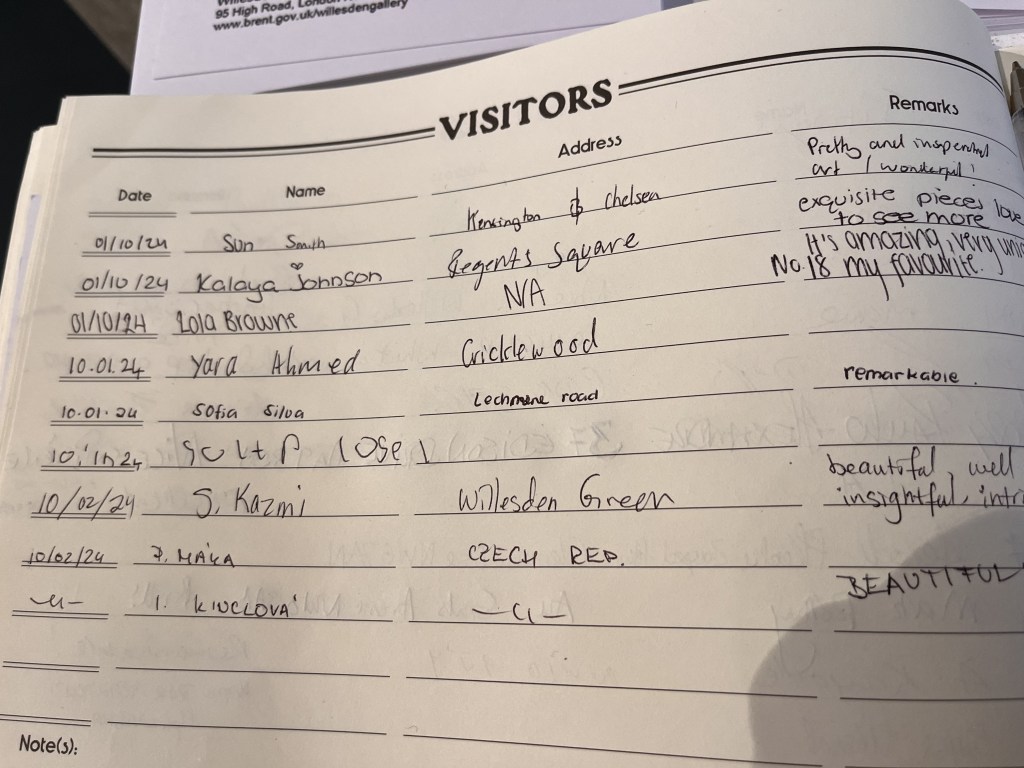 95 High Road, London
www.brent.gov.uk/willesdengallery
VISITORS
Date Name Address Remarks
Pretty and
art / wonderful!
01/10/24 Sun Smith Kensington & Chelsea exquisite pieces love
to see more
01/10/24 Kalaya Johnson Regents Square It's amazing, very
01/10/24 Lola Browne N/A No. 18 my favourite.
10.01.24 Yara Ahmed Cricklewood
10.01.24 Sofia Silva Lechmere road remarkable.
10/02/24 S. Kazmi Willesden Green beautiful, well
insightful,
10/02/24 MÁKA CZECH REP. BEAUTIFUL
-"- I. -"-
Note(s):